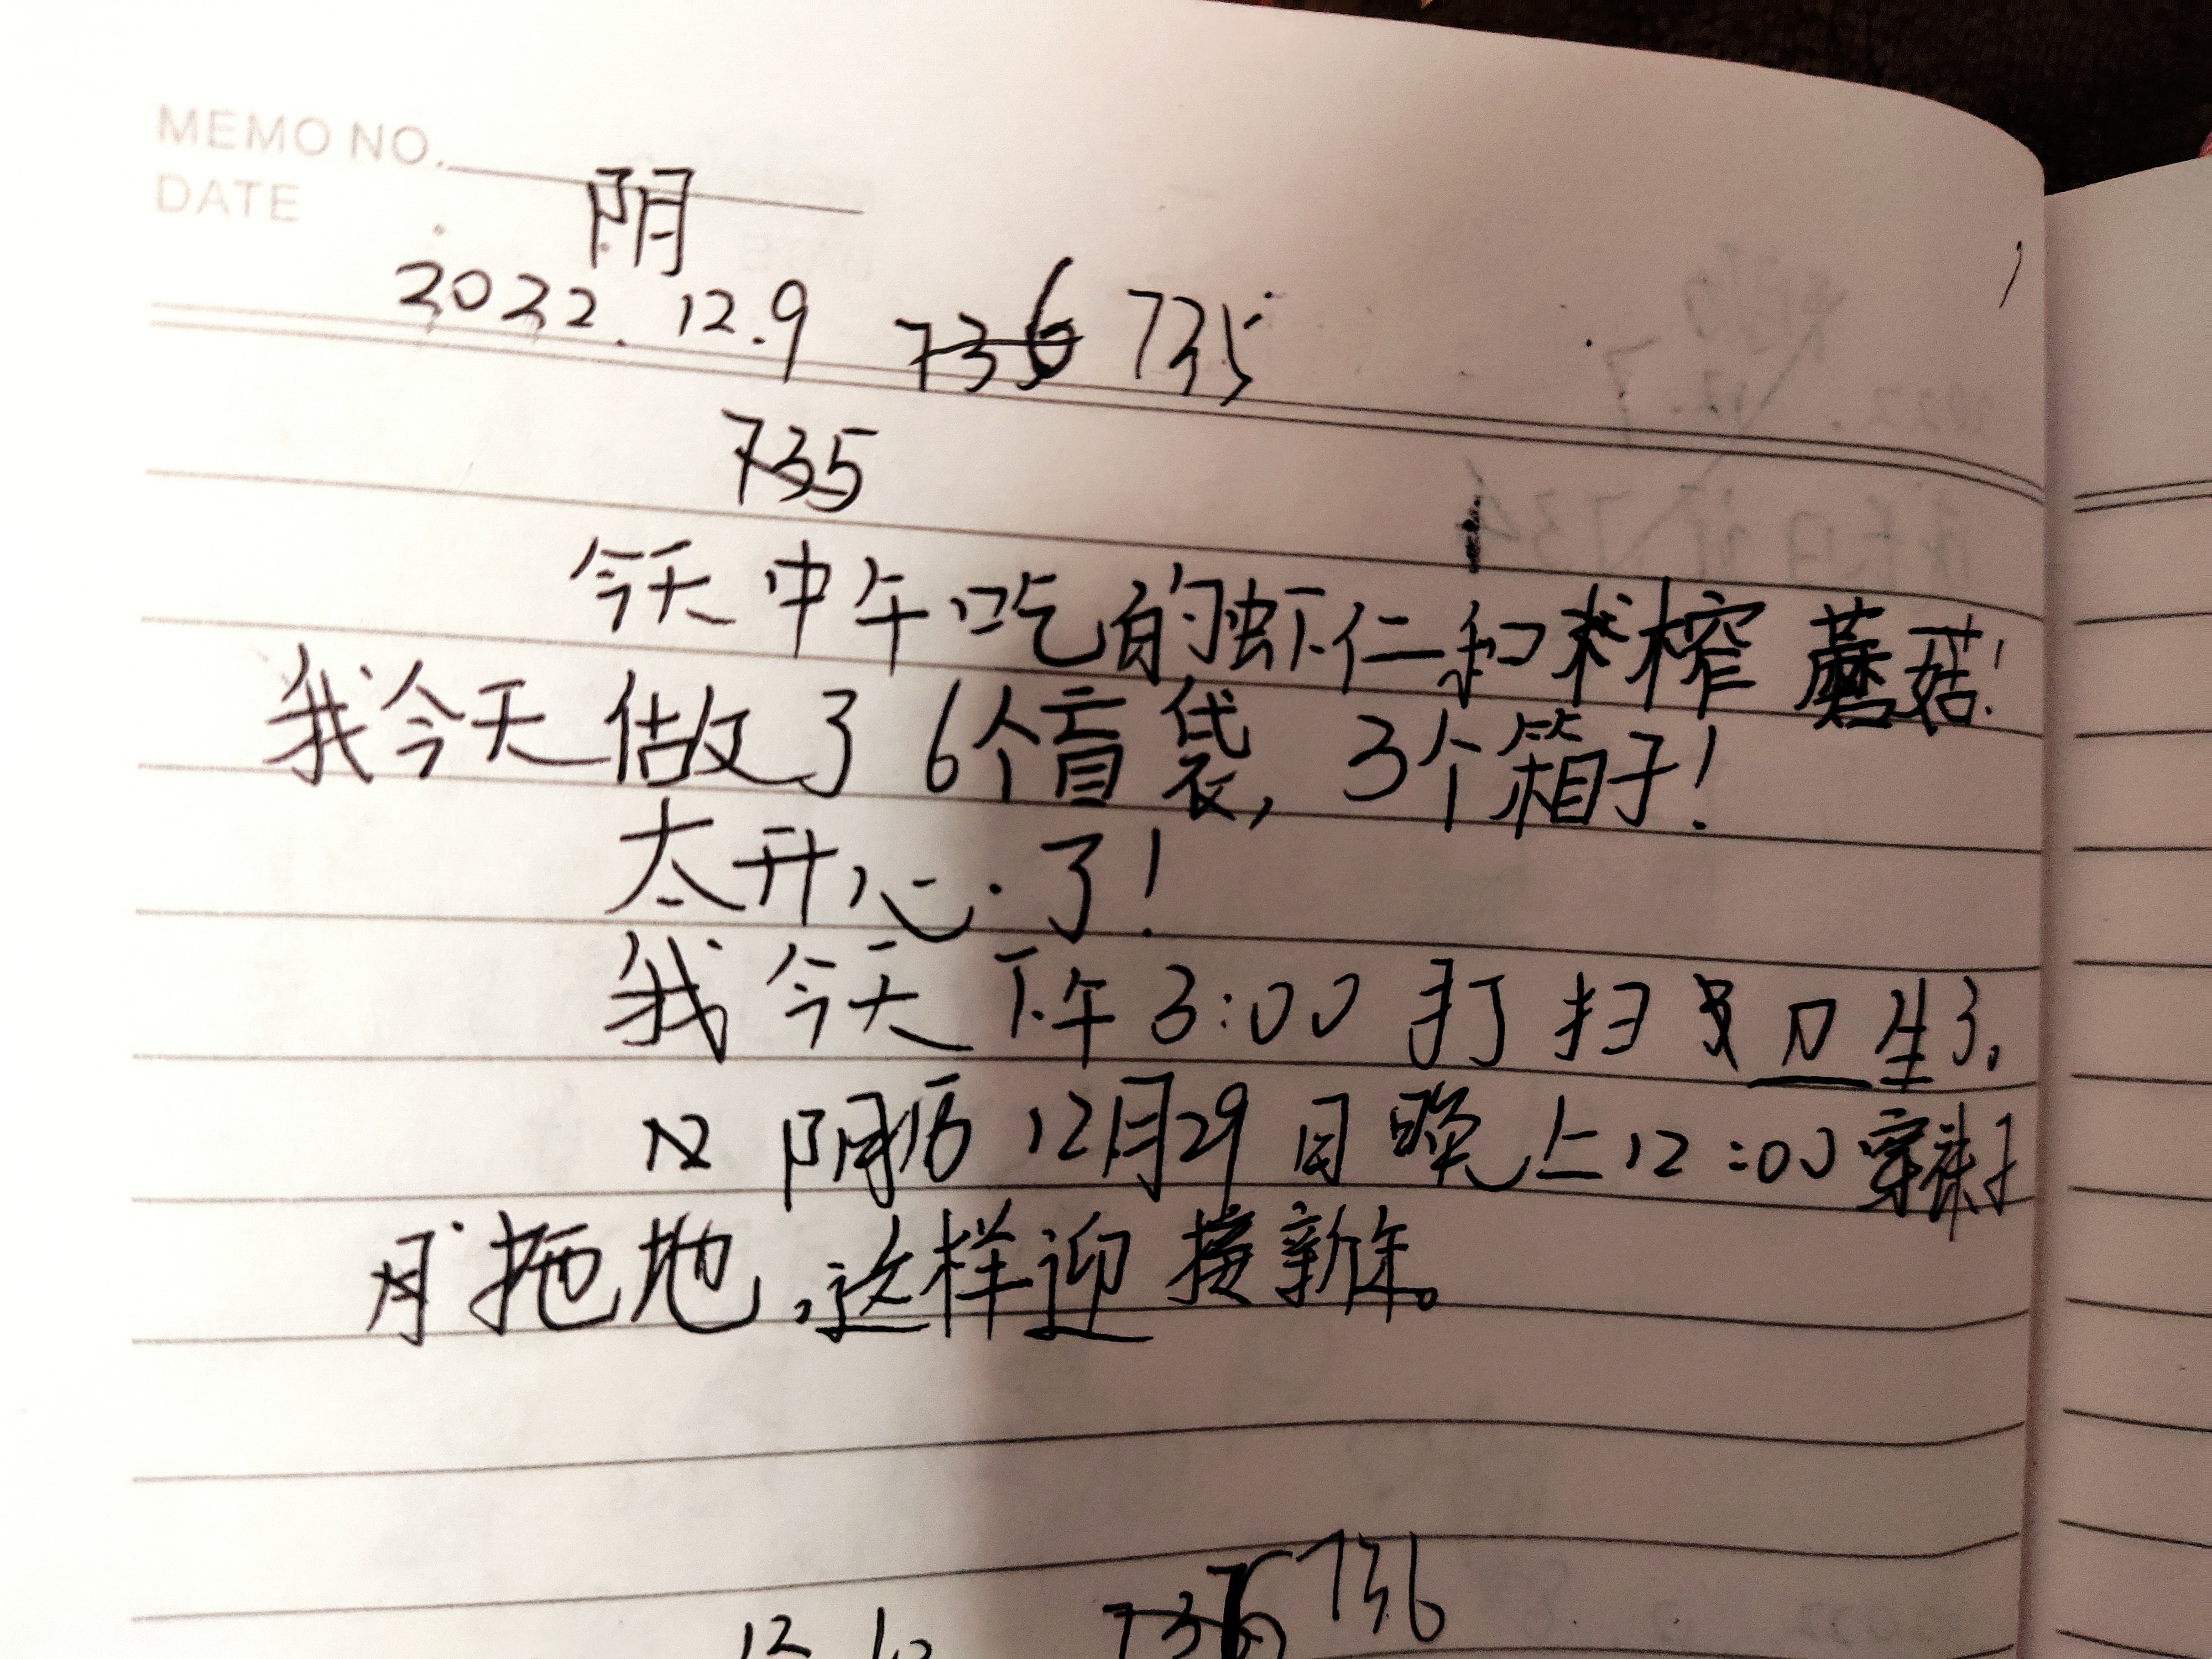 MEMO NO.
DATE
阴
2022.12.9 736 735
735
今天中午吃的虾仁和榨蘑菇!
我今天做了6个盲袋,3个箱子!
太开心了!
我今天下午3:00打扫卫生了。
阴历12月29日晚上12:00穿袜子
拖地,这样迎接新年。
12 736 736